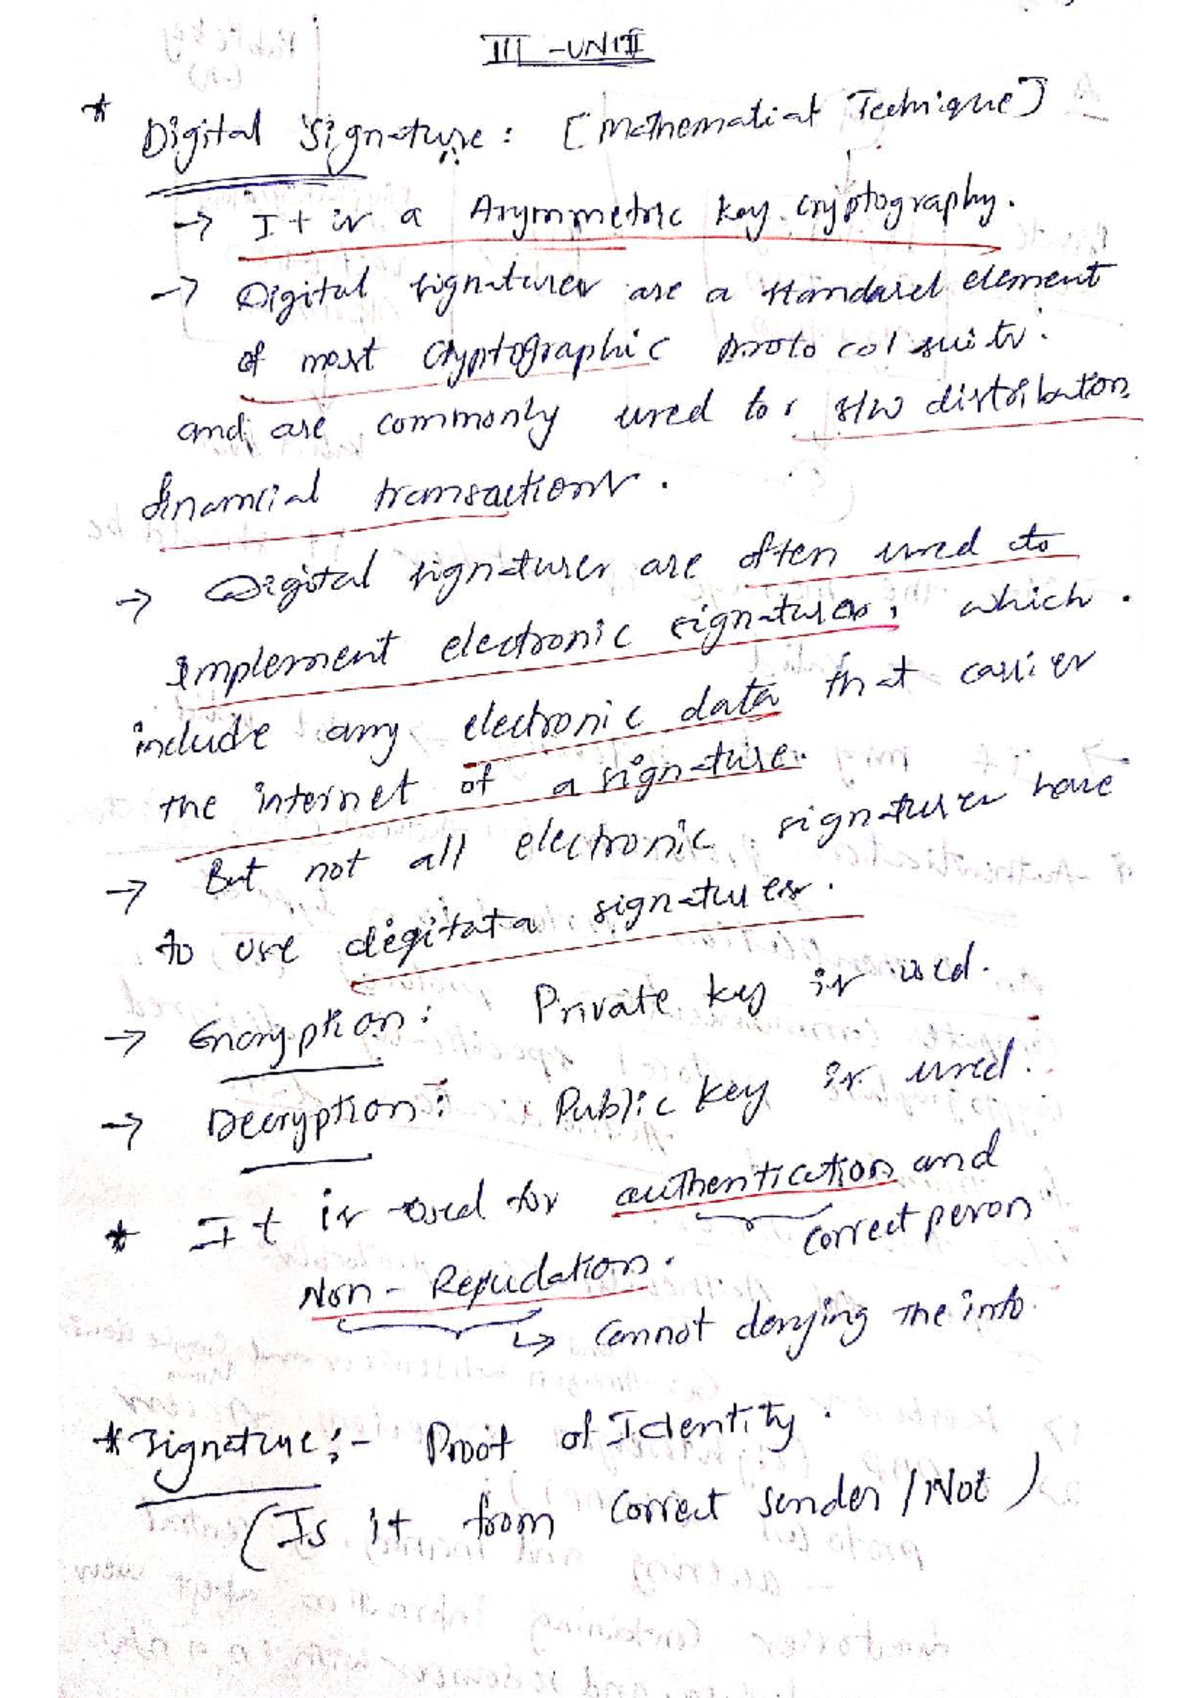 III - UNIT
* Digital Signature: [Mathematical Technique]
→ It is a Asymmetric key cryptography.
→ Digital signatures are a standard element
of most cryptographic protocol suits.
and are commonly used for s/w distribution
financial transactions.
→ Digital signatures are often used to
implement electronic signatures, which.
include any electronic data that carries
the internet of a signature.
→ But not all electronic signatures have
to use degitata signatures.
→ Encryption: Private key is used.
→ Decryption: Public key is used.
* It is used for authentication and
correct person
Non - Repudation.
↳ cannot denying the info.
* Signature:- Proof of Identity.
(Is it from correct sender / Not)